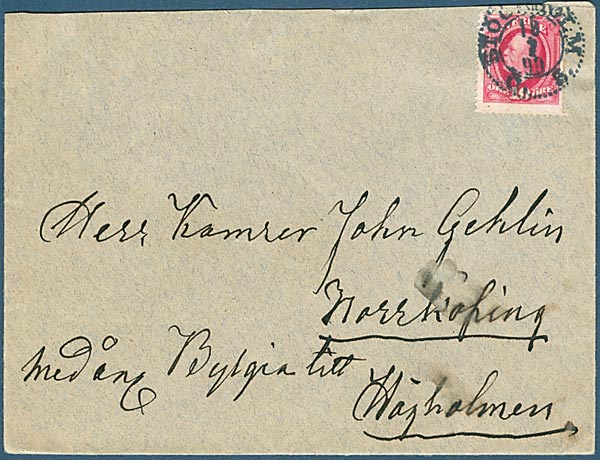 STOCKHOLM
19
1
99
10 ÖRE
Herr Kamrer John Gehlin
Norrköping
med ång Bylgia till
Högholmen